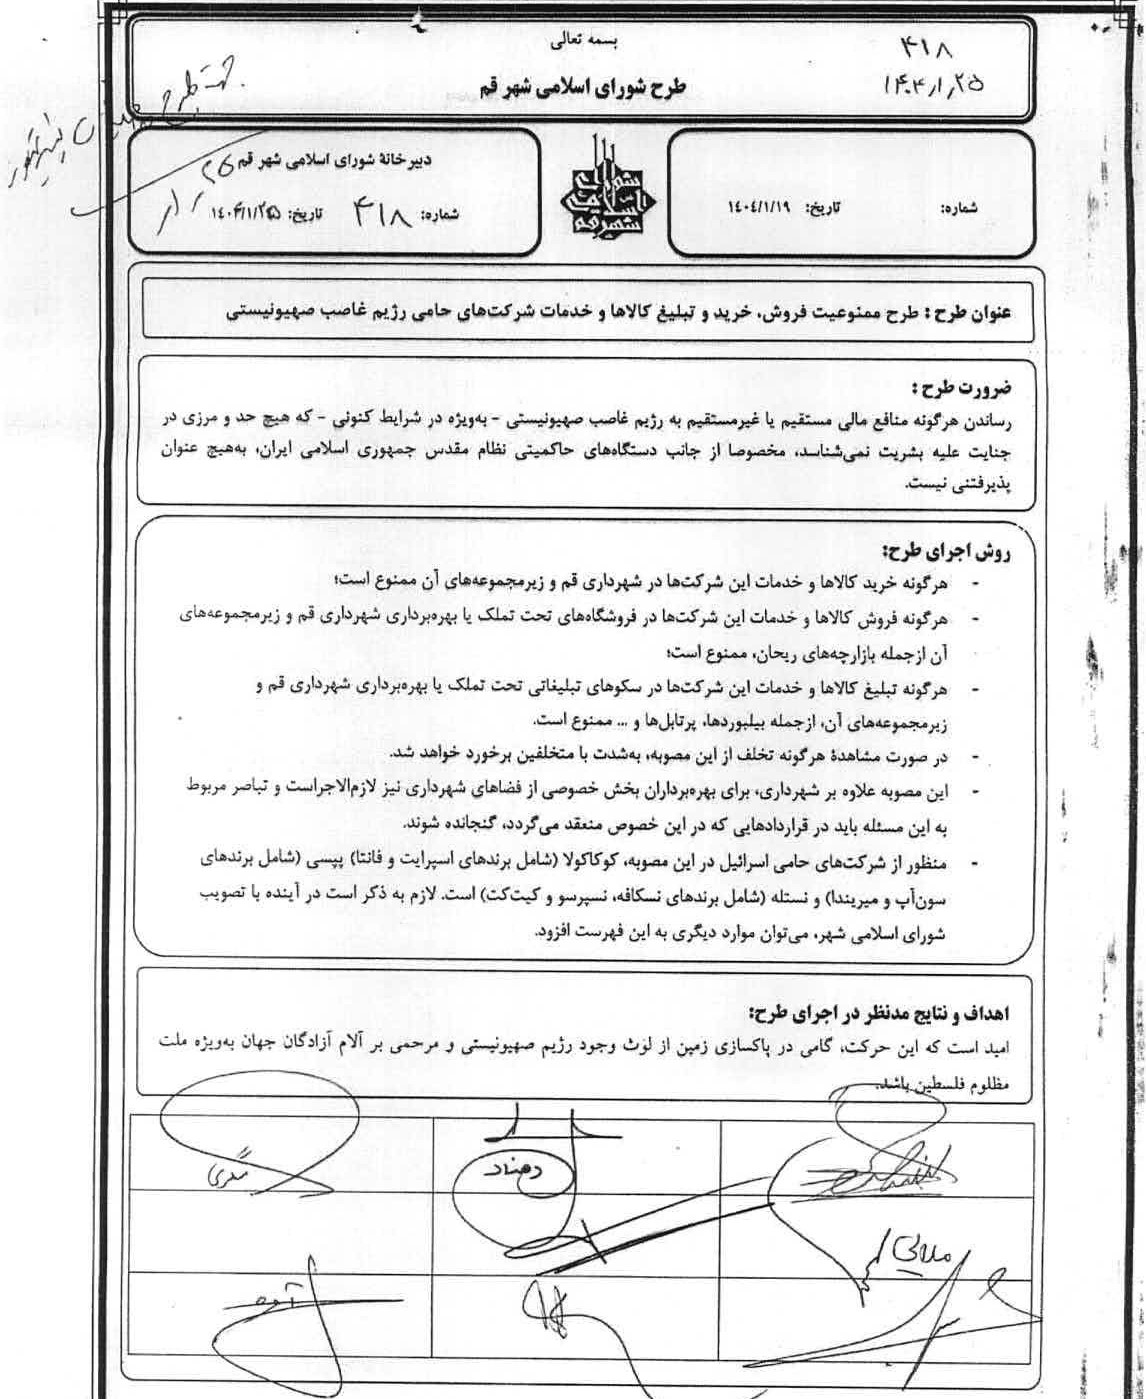 بسمه تعالی
طرح شورای اسلامی شهر قم
۴۱۸
۱۴۰۴/۱/۲۵
شماره:
تاریخ: ۱۴۰۴/۱/۱۹
شورای اسلامی شهر قم
دبیرخانهٔ شورای اسلامی شهر قم
شماره: ۴۱۸ تاریخ: ۱۴۰۴/۱/۲۵
عنوان طرح : طرح ممنوعیت فروش، خرید و تبلیغ کالاها و خدمات شرکت‌های حامی رژیم غاصب صهیونیستی
ضرورت طرح :
رساندن هرگونه منافع مالی مستقیم یا غیرمستقیم به رژیم غاصب صهیونیستی - به‌ویژه در شرایط کنونی - که هیچ حد و مرزی در
جنایت علیه بشریت نمی‌شناسد، مخصوصا از جانب دستگاه‌های حاکمیتی نظام مقدس جمهوری اسلامی ایران، به‌هیچ عنوان
پذیرفتنی نیست.
روش اجرای طرح:
- هرگونه خرید کالاها و خدمات این شرکت‌ها در شهرداری قم و زیرمجموعه‌های آن ممنوع است؛
- هرگونه فروش کالاها و خدمات این شرکت‌ها در فروشگاه‌های تحت تملک یا بهره‌برداری شهرداری قم و زیرمجموعه‌های
آن ازجمله بازارچه‌های ریحان، ممنوع است؛
- هرگونه تبلیغ کالاها و خدمات این شرکت‌ها در سکوهای تبلیغاتی تحت تملک یا بهره‌برداری شهرداری قم و
زیرمجموعه‌های آن، ازجمله بیلبوردها، پرتابل‌ها و ... ممنوع است.
- در صورت مشاهدهٔ هرگونه تخلف از این مصوبه، به‌شدت با متخلفین برخورد خواهد شد.
- این مصوبه علاوه بر شهرداری، برای بهره‌برداران بخش خصوصی از فضاهای شهرداری نیز لازم‌الاجراست و تباصر مربوط
به این مسئله باید در قراردادهایی که در این خصوص منعقد می‌گردد، گنجانده شوند.
- منظور از شرکت‌های حامی اسرائیل در این مصوبه، کوکاکولا (شامل برندهای اسپرایت و فانتا) پپسی (شامل برندهای
سون‌آپ و میریندا) و نستله (شامل برندهای نسکافه، نسپرسو و کیت‌کت) است. لازم به ذکر است در آینده با تصویب
شورای اسلامی شهر، می‌توان موارد دیگری به این فهرست افزود.
اهداف و نتایج مدنظر در اجرای طرح:
امید است که این حرکت، گامی در پاکسازی زمین از لوث وجود رژیم صهیونیستی و مرحمی بر آلام آزادگان جهان به‌ویژه ملت
مظلوم فلسطین باشد.